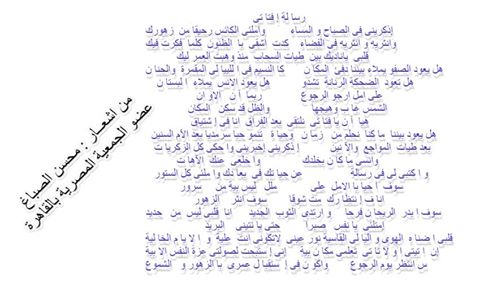 رسالة إفتاتي
إذكريني في الصباح و المساء وأملئي الكأس رحيقا من زهورك
وانثرية و انثرية في الفضاء كنت أشقي با الظنون كلما فكرت فيك
قلبي يناديك بين طيات السحاب منذ وهبت العمر ليك
هل يعود الصفو يملاء بيننا دفئ المكان كا النسيم في الليبا لي المقمرة والحنان
هل تعود الضحكة الرنانة تشدو هل يعود الانس يملاء البستان
على امل ارجو الرجوع ربما آن الاوان
الشمس غاب وهيجها والظل قد سكن المكان
هيا آن يا فتاتي نلتقي بعد الفراق انا في إشتياق
هل يعود بيننا ما كنا نحلم من زمان وحياة تنمو حيا سرمديا بعد الأم السنين
بعد طيات المواجع والأنين إذكريني إخبريني واحكي كل الزكريات
وانسي ما كان يخلدك واخلعي عنك الآهات
واكتبي لي في رسالة عن حياتك في بعادك واملئي كل السطور
سوف أحيا با الامل على ملل ليس بية من سرور
انا في إنتظارك مت شوقا سوف انثر الزهور
سوف ابدر الريحان فرحا وارتدي الثوب الجديد انا قلبي ليس من جديد
إمتلئي يا نفس صبرا حتي يا نتيني البريد
قلبي اضناه الهوى واليالي القاسية نور عيني لاتكوني انت علية والايام الخالية
إن إتيتي اولا تاتي تعلمي مكانية إني إستبحت لصولتي عزة النفس الابية
س انتظر يوم الرجوع واكون في إستقبال عمري با الزهور و الشموع
من اشعار : محسن الصباغ
عضو الجمعية المصرية بالقاهرة